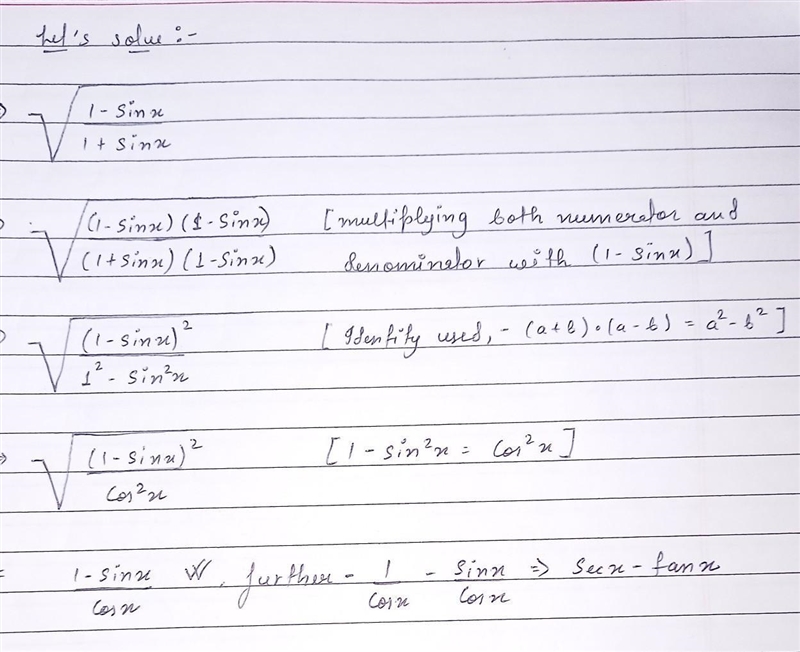 Let's solve :-
⇒ √((1 - sinx)/(1 + sinx))
⇒ √((1-sinx)(1-sinx)/(1+sinx)(1-sinx)) [multiplying both numerator and denominator with (1-sinx)]
⇒ √((1-sinx)²/(1² - sin²x)) [Identity used, - (a+b)•(a-b) = a²-b²]
⇒ √((1-sinx)²/cos²x) [1-sin²x = cos²x]
= (1-sinx)/cosx, further - 1/cosx - sinx/cosx ⇒ secx - tanx